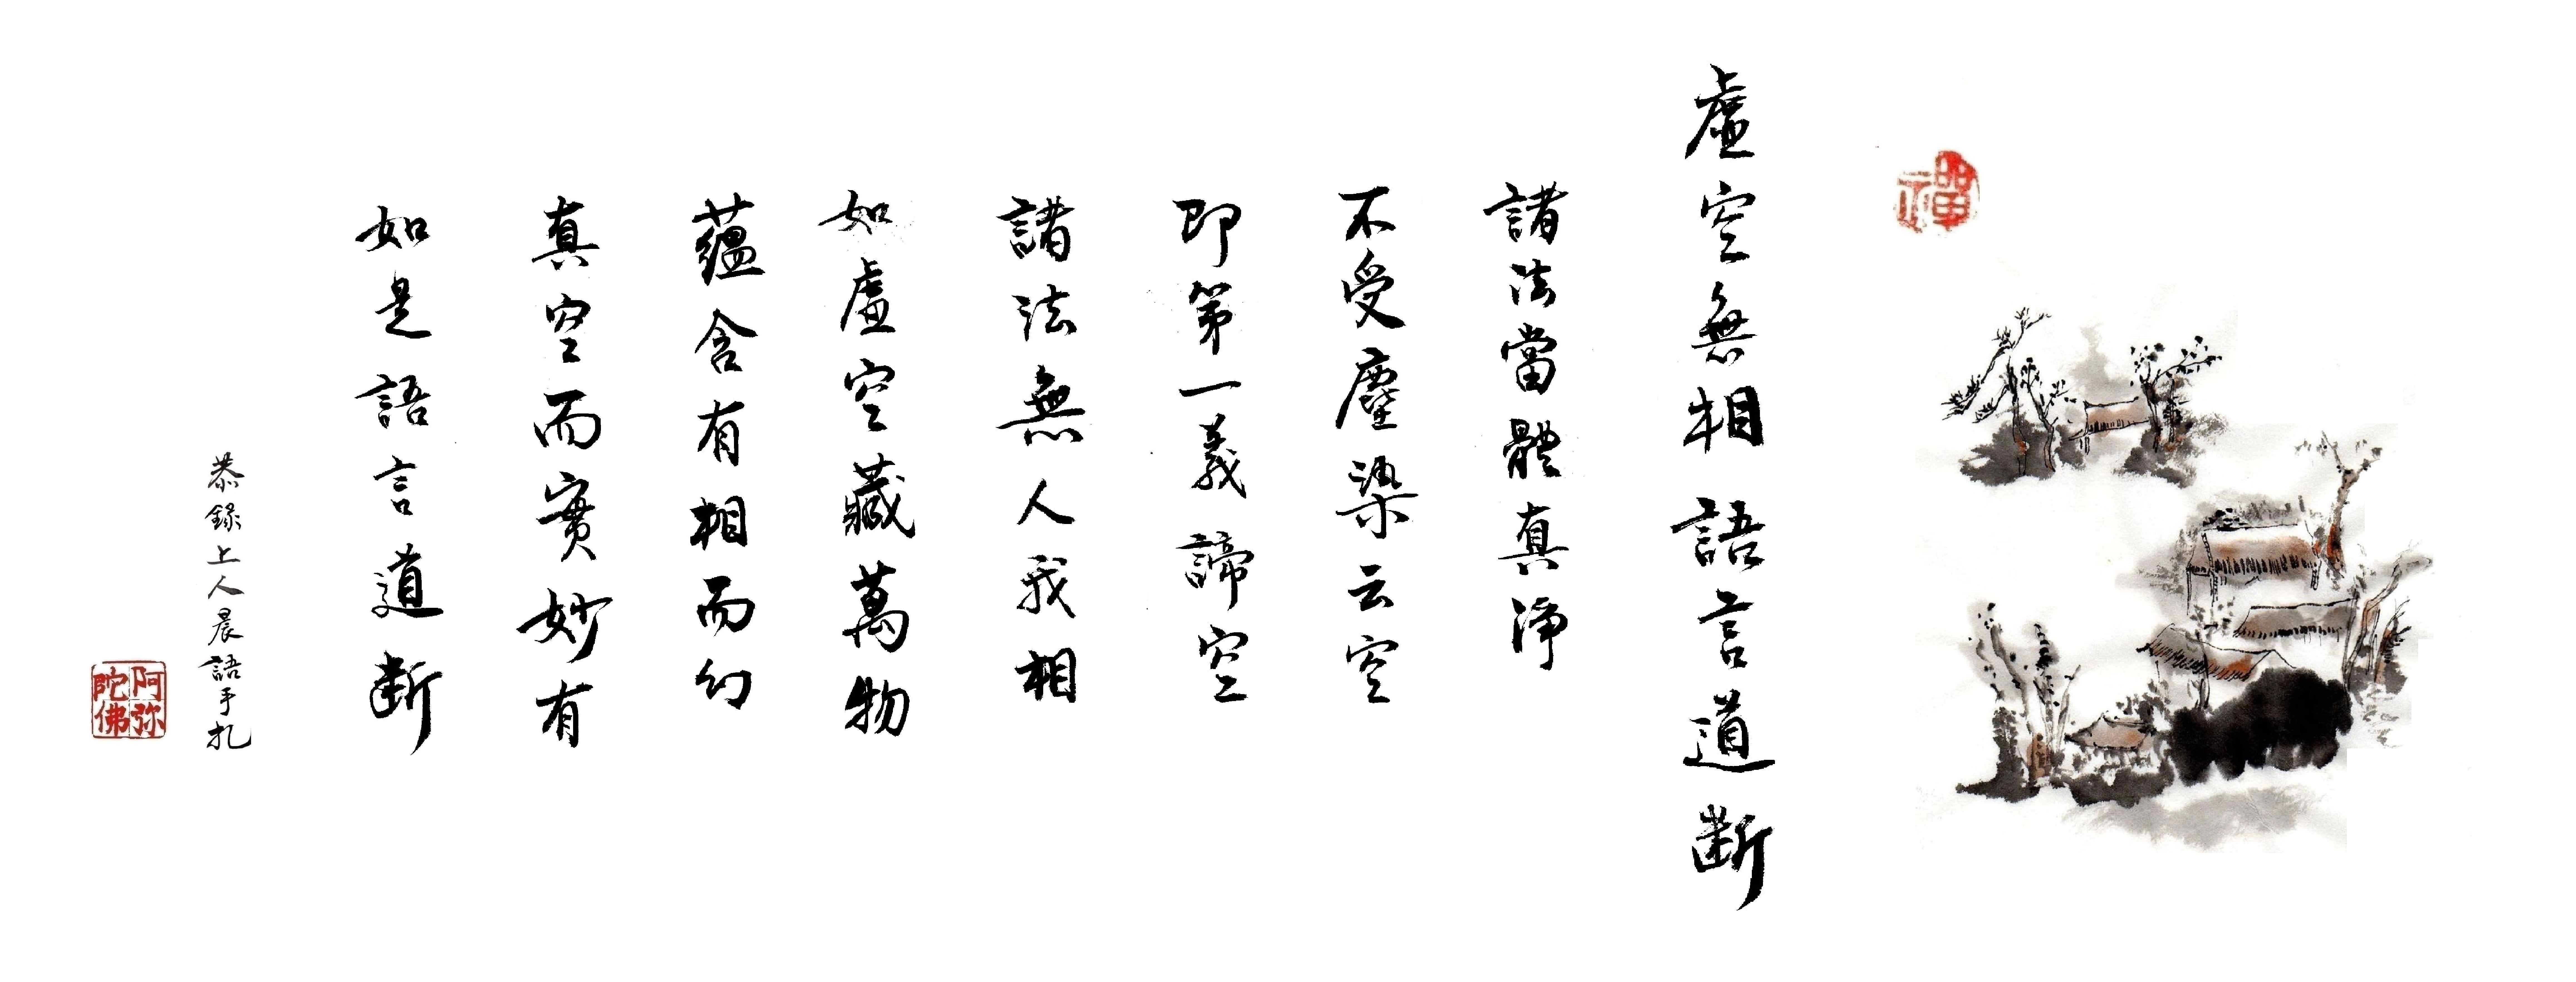 禪
虛空無相語言道斷
諸法當體真淨
不受塵染云空
即第一義諦空
諸法無人我相
如虛空藏萬物
蘊含有相而幻
真空而實妙有
如是語言道斷
恭錄上人晨語手札
阿弥陀佛